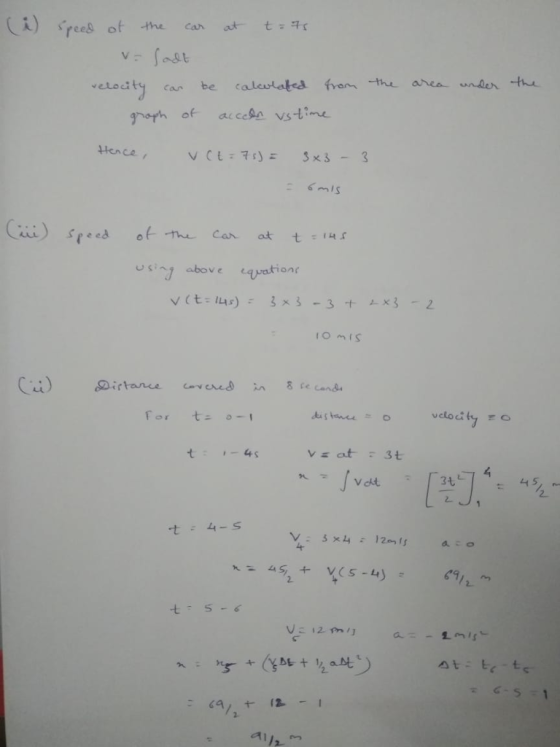 (i) Speed of the car at t = 7s
v = ∫adt
velocity can be calculated from the area under the
graph of acceln vs time
Hence, v(t = 7s) = 3×3 - 3
= 6m/s
(iii) Speed of the car at t = 14s
Using above equations
v(t=14s) = 3×3 - 3 + 2×3 - 2
= 10 m/s
(ii) Distance covered in 8 seconds
For t = 0-1 distance = 0 velocity = 0
t = 1-4s V = at = 3t
x = ∫vdt = [3t²/2]₁⁴ = 45/2 m
t = 4-5 V₄ = 3×4 = 12m/s a = 0
x = 45/2 + V₄(5-4) = 69/2 m
t = 5-6
V₅ = 12 m/s a = -2 m/s²
x = x₅ + (V₅Δt + 1/2 aΔt²) Δt = t₆ - t₅
= 69/2 + 12 - 1 = 6-5 = 1
= 91/2 m